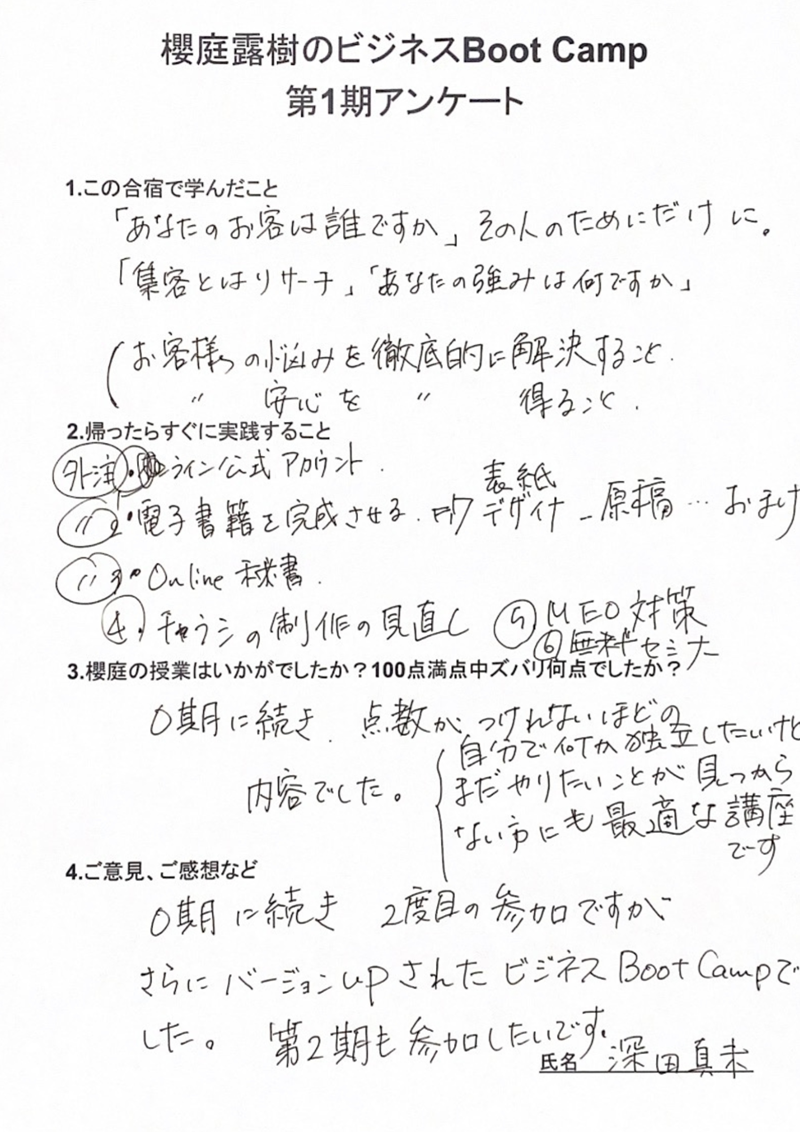 櫻庭露樹のビジネスBoot Camp
第1期アンケート
1.この合宿で学んだこと
「あなたのお客は誰ですか」その人のためにだけに。
「集客とはリサーチ」「あなたの強みは何ですか」
お客様の悩みを徹底的に解決すること.
〃 安心を 〃 得ること.
2.帰ったらすぐに実践すること
外注 ライン公式アカウント.
〃 2 電子書籍を完成させる. 表紙デザイナー 原稿…おまけ
〃 3 Online 秘書.
4. チラシの制作の見直し ⑤ MEO対策
⑥ 無料セミナー
3.櫻庭の授業はいかがでしたか？100点満点中ズバリ何点でしたか？
0期に続き. 点数がつけれないほどの
内容でした。
自分で何か独立したいけど
まだやりたいことが見つから
ない方にも最適な講座
です
4.ご意見、ご感想など
0期に続き 2度目の参加ですが
さらにバージョンupされたビジネスBoot Campで
した。 第2期も参加したいです。
氏名 深田真未